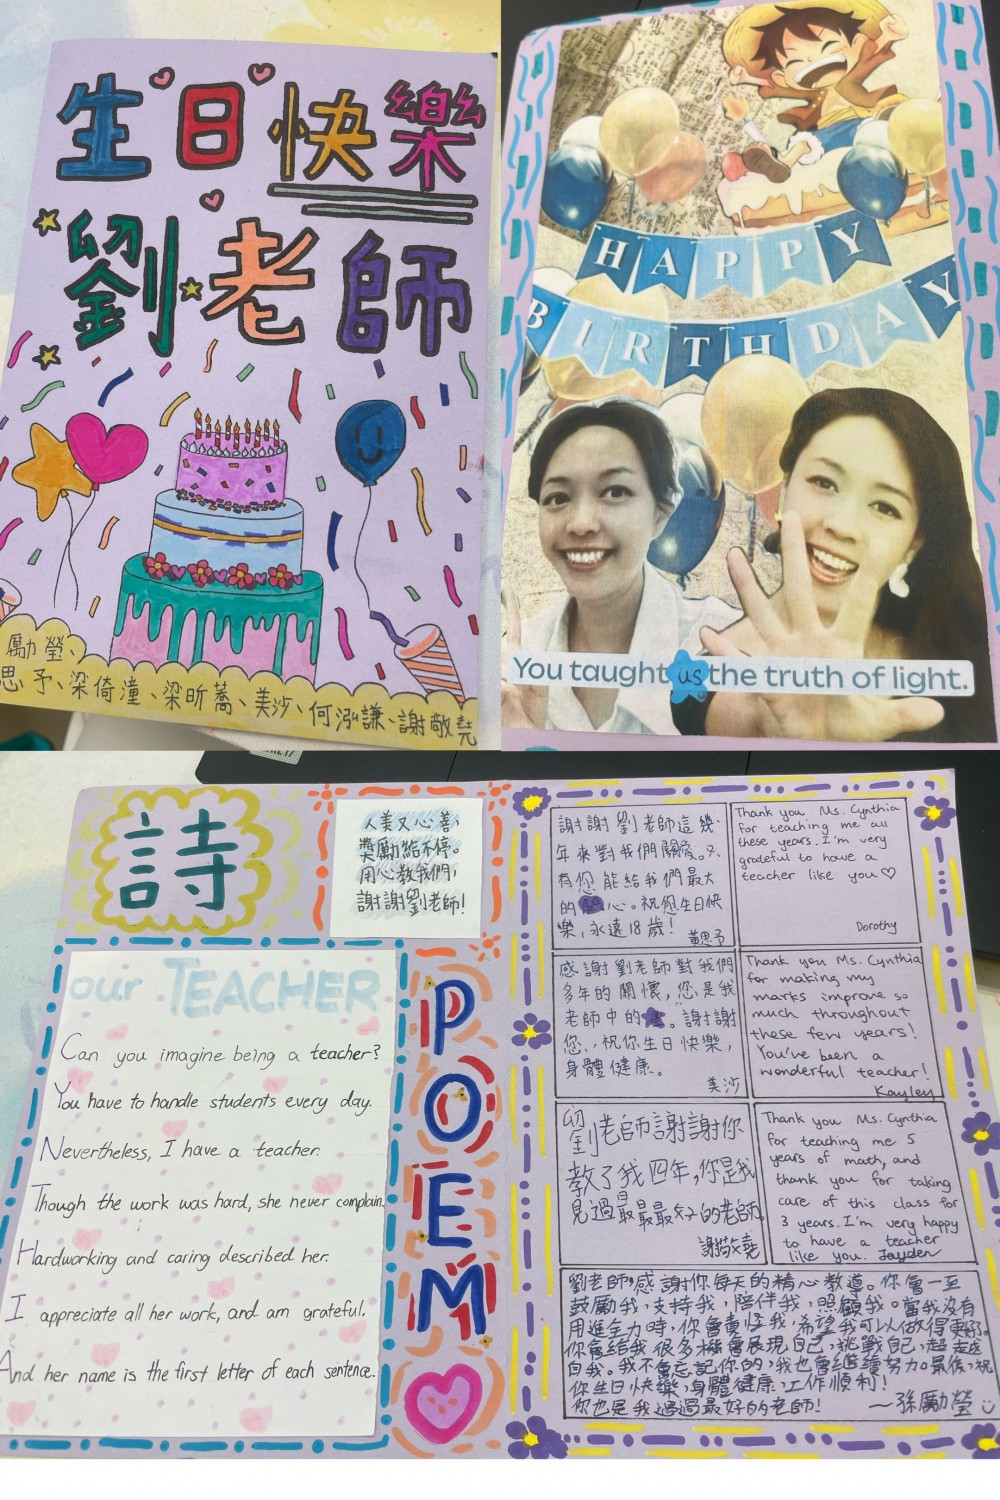 生日快樂
劉老師
勵瑩、
思予、梁倚潼、梁昕蕎、美沙、何泓謙、謝敬堯
HAPPY
BIRTHDAY
You taught us the truth of light.
詩
人美又心善，
獎勵給不停。
用心教我們，
謝謝劉老師！
our TEACHER
Can you imagine being a teacher?
You have to handle students every day.
Nevertheless, I have a teacher.
Though the work was hard, she never complain.
Hardworking and caring described her.
I appreciate all her work, and am grateful.
And her name is the first letter of each sentence.
POEM
謝謝劉老師這幾
年來對我們關愛。只
有您能給我們最大
的心。祝您生日快
樂，永遠18歲！
黃思予
Thank you Ms. Cynthia
for teaching me all
these years. I'm very
grateful to have a
teacher like you♡
Dorothy
感謝劉老師對我們
多年的關懷，您是我
老師中的。謝謝
您，祝你生日快樂，
身體健康。
美沙
Thank you Ms. Cynthia
for making my
marks improve so
much throughout
these few years!
You've been a
wonderful teacher!
Kayley
劉老師謝謝你
教了我四年，你是我
見過最最最好的老師。
謝敬堯
Thank you Ms. Cynthia
for teaching me 5
years of math, and
thank you for taking
care of this class for
3 years. I'm very happy
to have a teacher
like you. Jayden
劉老師，感謝你每天的精心教導。你會一至
鼓勵我，支持我，陪伴我，照顧我。當我沒有
用進全力時，你會責怪我，希望我可以做得更好。
你會給我很多機會展現自己，挑戰自己，超越
自我。我不會忘記你的，我也會繼續努力。最後，祝
你生日快樂，身體健康，工作順利！
你也是我遇過最好的老師！
—孫勵瑩